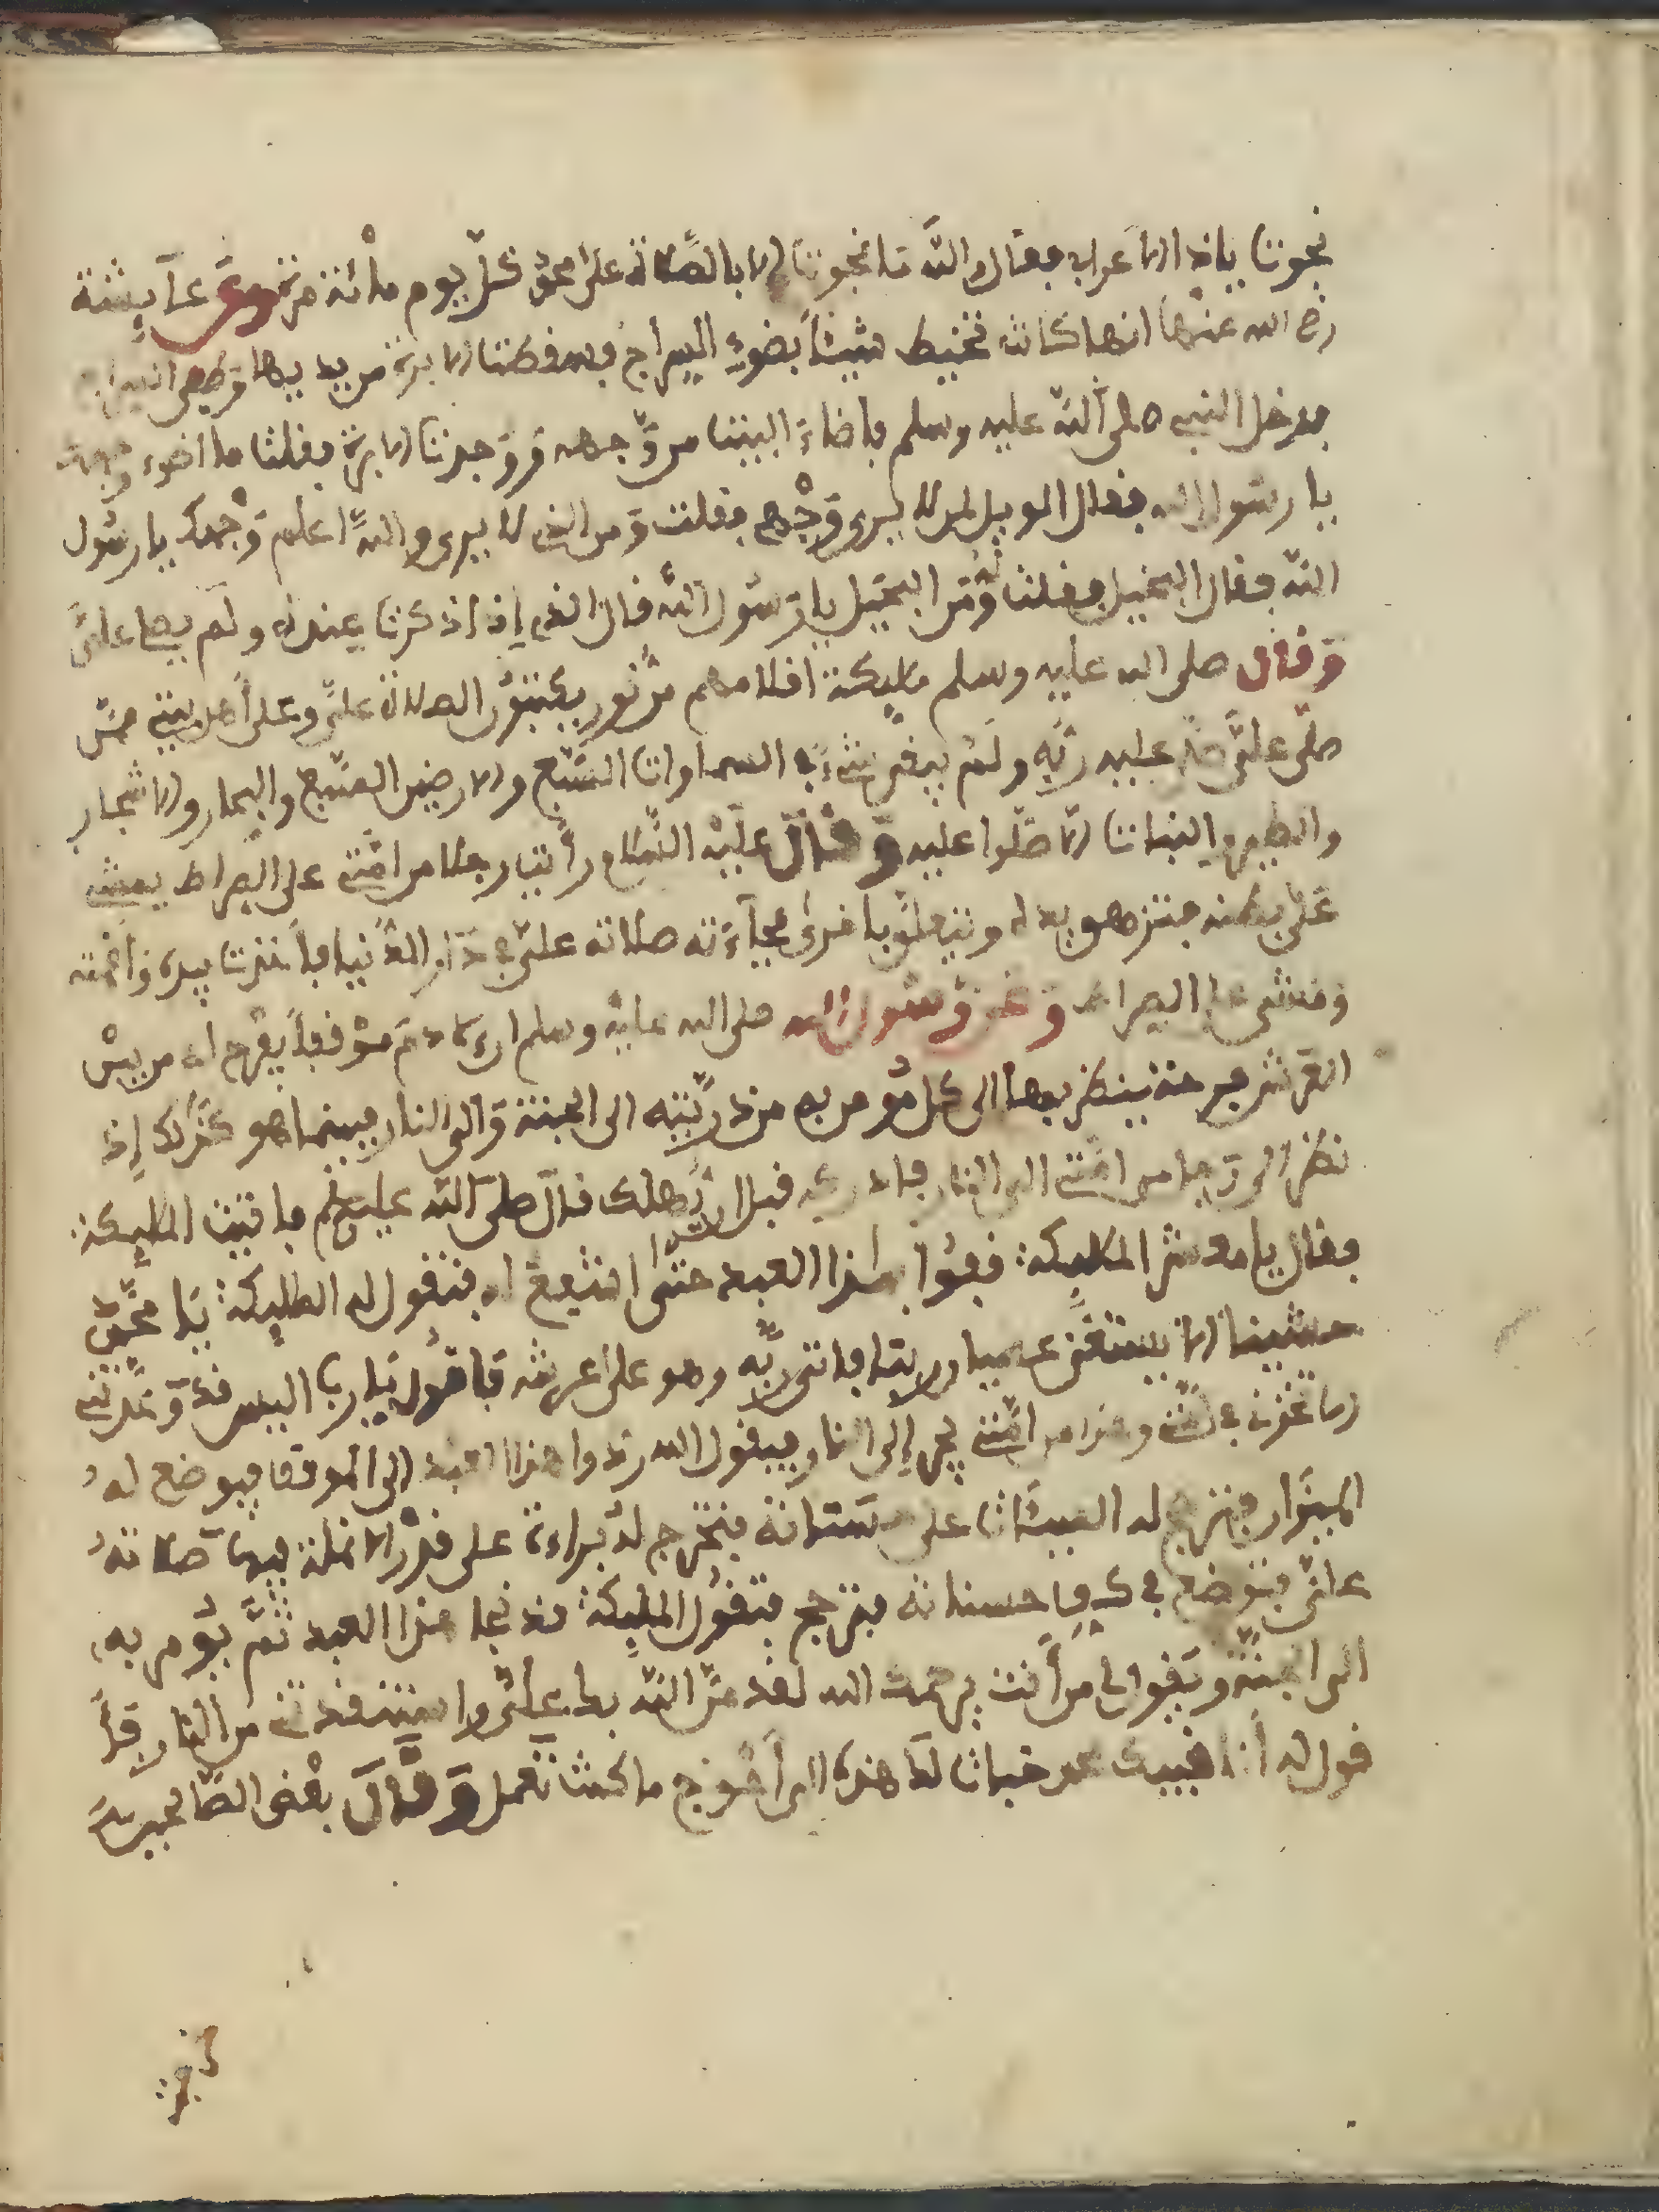 نجوت يا ذا الاعراب فقال والله ما نجوت الا بالصلاة على محمد كل يوم مائة مرة وعن عآيشة
رضي الله عنها انها كانت تخيط شيئا بضوء السراج فسقطت الابرة من يديها وطفى السراج
فدخل النبي صلى الله عليه وسلم فاضاء البيت من وجهه فوجدت الابرة فقلت ما اضوء وجهك
يا رسول الله فقال الويل لمن لا يرى وجهي فقلت ومن الذي لا يرى والله اعلم وجهك يا رسول
الله فقال البخيل فقلت ومن البخيل يا رسول الله قال الذي إذا ذكرت عنده ولم يصل علىّ
وقال صلى الله عليه وسلم مليكة اقلامهم من نور يكتبون الصلاة علىّ وعلى أهل بيتي فمن
صلى علىّ صلى عليه ربه ولم يبق شيء في السماوات السبع والارضين السبع والبحار والاشجار
والطير والنبات الا صلوا عليه وقال عليه السلام رأيت رجلا من امتي على الصراط يمشي
على بطنه فتزهو به و يتعلق باخرى فجآءته صلاته علىّ في دار الدنيا فأخذت بيده وأقامته
ومشى على الصراط وعن رسول الله صلى الله عليه وسلم ان ءادم موقفا يقوم له من بين
العرش ينظر بها الى كل من يومر به من ذريته الى الجنة والى النار فبينما هو كذلك إذ
نظر الى رجل من امتي الى النار فادركه قبل ان يهلك قال صلى الله عليه وسلم فاتيت المليكة
فقال يا معشر المليكة قفوا بهذا العبد حتى اشفع له فتقول له المليكة يا محمد
حسبنا الا ربنا فاتى ربه وهو على عرشه فاقول يا رب اليس قد وعدتني
الا تخزني في امتي وهذا من امتي يجر إلى النار فيقول الله ردوا هذا العبد الى الموقف فيوضع له
الميزان فترجح له السيئات على حسناته فتخرج له براءة على قدر الانملة فيها صلاته
علىّ فتوضع في كفة حسناته فترجح فتقول المليكة قد نجا هذا العبد ثم يؤمر به
الى الجنة ويقول لي من أنت يرحمك الله لقد من الله بك علىّ واستنقذتني من النار فأ
قول له أنا نبيك محمد خبات لك هذه الى أحوج ما كنت تعمل وقال بعض الصالحين